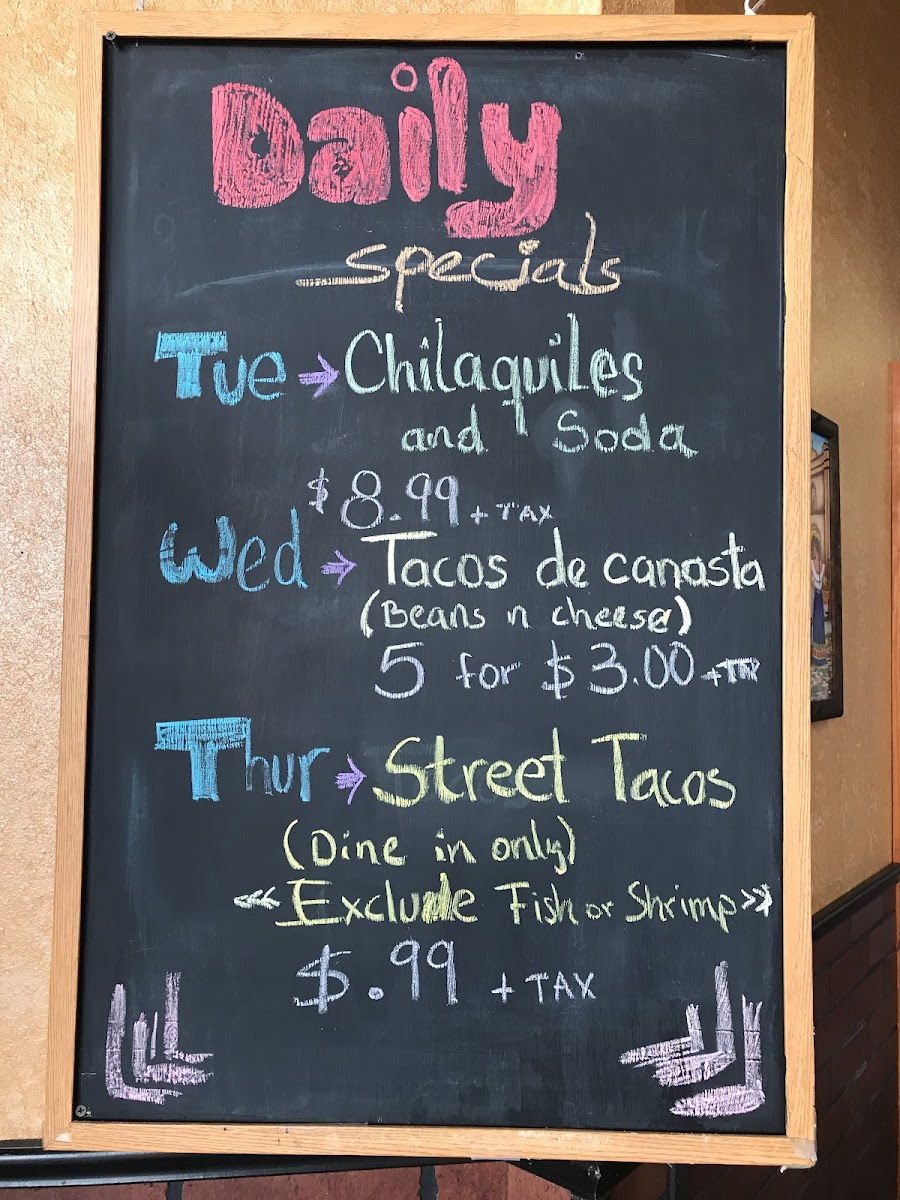 Daily
specials
Tue → Chilaquiles
and Soda
$8.99 + TAX
Wed → Tacos de canasta
(Beans n cheese)
5 for $3.00 + TAX
Thur → Street Tacos
(Dine in only)
<<< Exclude Fish or Shrimp >>>
$.99 + TAX